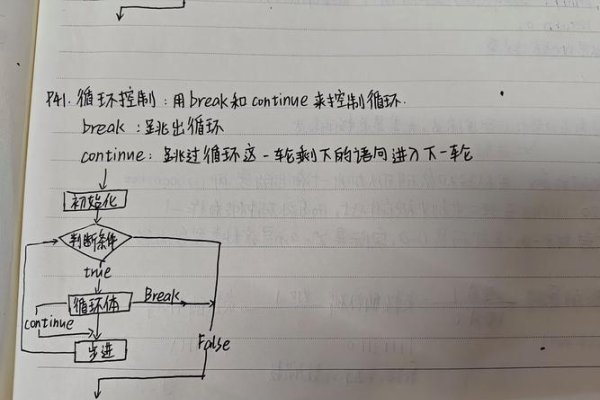 P41. 循环控制：用break和continue来控制循环.
break：跳出循环
continue：跳过循环这一轮剩下的语句进入下一轮
初始化
判断条件
true
循环体 Break
continue
False
步进